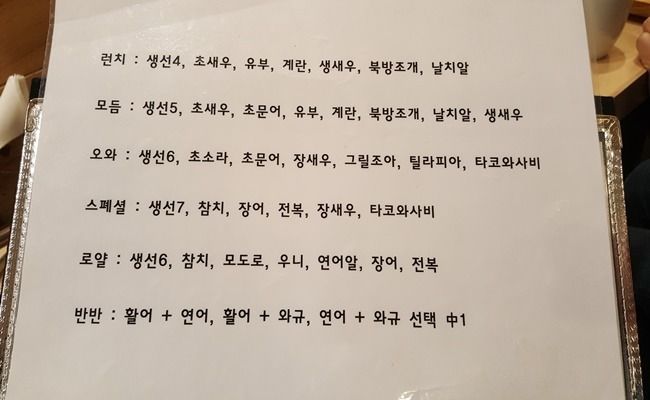 런치 : 생선4, 초새우, 유부, 계란, 생새우, 북방조개, 날치알
모듬 : 생선5, 초새우, 초문어, 유부, 계란, 북방조개, 날치알, 생새우
오와 : 생선6, 초소라, 초문어, 장새우, 그릴조아, 틸라피아, 타코와사비
스폐셜 : 생선7, 참치, 장어, 전복, 장새우, 타코와사비
로얄 : 생선6, 참치, 모도로, 우니, 연어알, 장어, 전복
반반 : 활어 + 연어, 활어 + 와규, 연어 + 와규 선택 中1